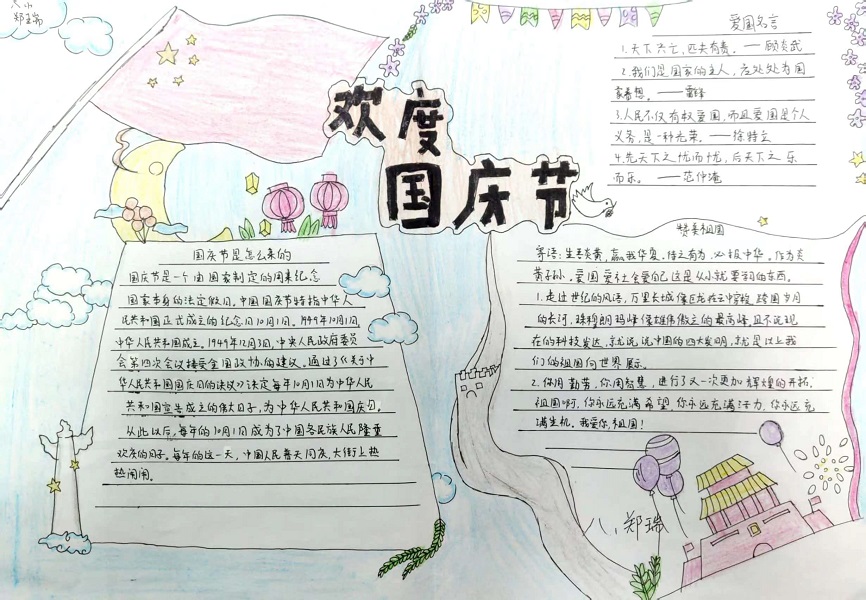 欢度
国庆节
爱国名言
1.天下兴亡,匹夫有责。——顾炎武
2.我们是国家的主人,应处处为国
家着想。——雷锋
3.人民不仅有权爱国,而且爱国是个人
义务,是一种光荣。——徐特立
4.先天下之忧而忧,后天下之乐
而乐。——范仲淹
国庆节是怎么来的
国庆节是一个由国家制定的用来纪念
国家本身的法定假日。中国国庆节特指中华人
民共和国正式成立的纪念日10月1日。1949年10月1日,
中华人民共和国成立。1949年12月3日,中央人民政府委员
会第四次会议接受全国政协的建议。通过了《关于中
华人民共和国国庆日的决议》决定每年10月1日为中华人民
共和国宣告成立的伟大日子,为中华人民共和国国庆日。
从此以后,每年的10月1日成为了中国各民族人民隆重
欢度的日子。每年的这一天,中国人民普天同庆,大街上热
热闹闹。
赞美祖国
寄语:生吾炎黄,赢我华夏,待之有为,必报中华。作为炎
黄子孙。爱国爱社会爱自己这是从小就要到的东西。
1.走过世纪的风浪,万里长城像巨龙在云中穿梭,跨国岁月
的长河,珠穆朗玛峰像雄伟傲立的最高峰。且不说现
在的科技发达,就说说中国的四大发明,就是以上我
们的祖国向世界展示。
2.你用勤劳,你用智慧,进行了又一次更加辉煌的开拓,
祖国啊,你永远充满希望,你永远充满活力,你永远充
满生机。我爱你,祖国!
八、郑瑞